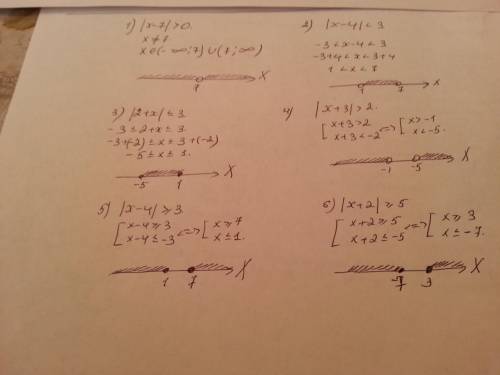 1) |x-7| > 0.
x ≠ 7
x ∈ (-∞; 7) ∪ (7; ∞)
7 X
2) |x-4| < 3
-3 < x-4 < 3
-3+4 < x < 3+4
1 < x < 7
1 7 X
3) |2+x| ≤ 3
-3 ≤ 2+x ≤ 3.
-3+(-2) ≤ x ≤ 3+(-2)
-5 ≤ x ≤ 1.
-5 1 X
4) |x+3| > 2.
[ x+3 > 2 <=> [ x > -1
x+3 < -2 x < -5.
-1 -5 X
5) |x-4| ≥ 3.
[ x-4 ≥ 3 <=> [ x ≥ 7
x-4 ≤ -3 x ≤ 1.
1 7 X
6) |x+2| ≥ 5
[ x+2 ≥ 5 <=> [ x ≥ 3
x+2 ≤ -5 x ≤ -7.
-7 3 X